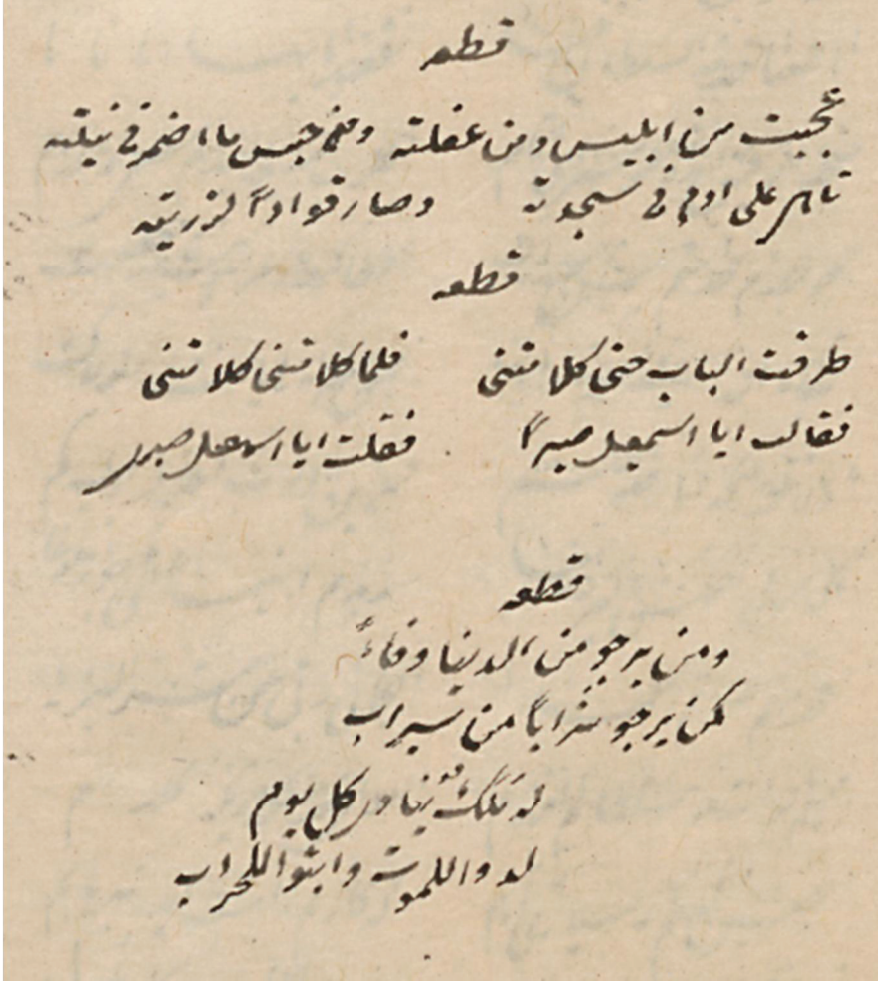 قطعه
عجبت من ابليس ومن غفلته ومن خبس ما اضمر فى نيلته
تاهر على ادم فى سجدته وصار قواداً لزريته
قطعه
طرقت الباب حتى كلا متنى فلما كلا متنى كلا متنى
فقالت ايا اسمعيل صبراً فقلت ايا اسمعيل صبرى
قطعه
ومن يرجو من الدينا وفاءً
كمن يرجو شراباً من سراب
له ملك ينادى كل يوم
لدوا للموت وابنوا للخراب